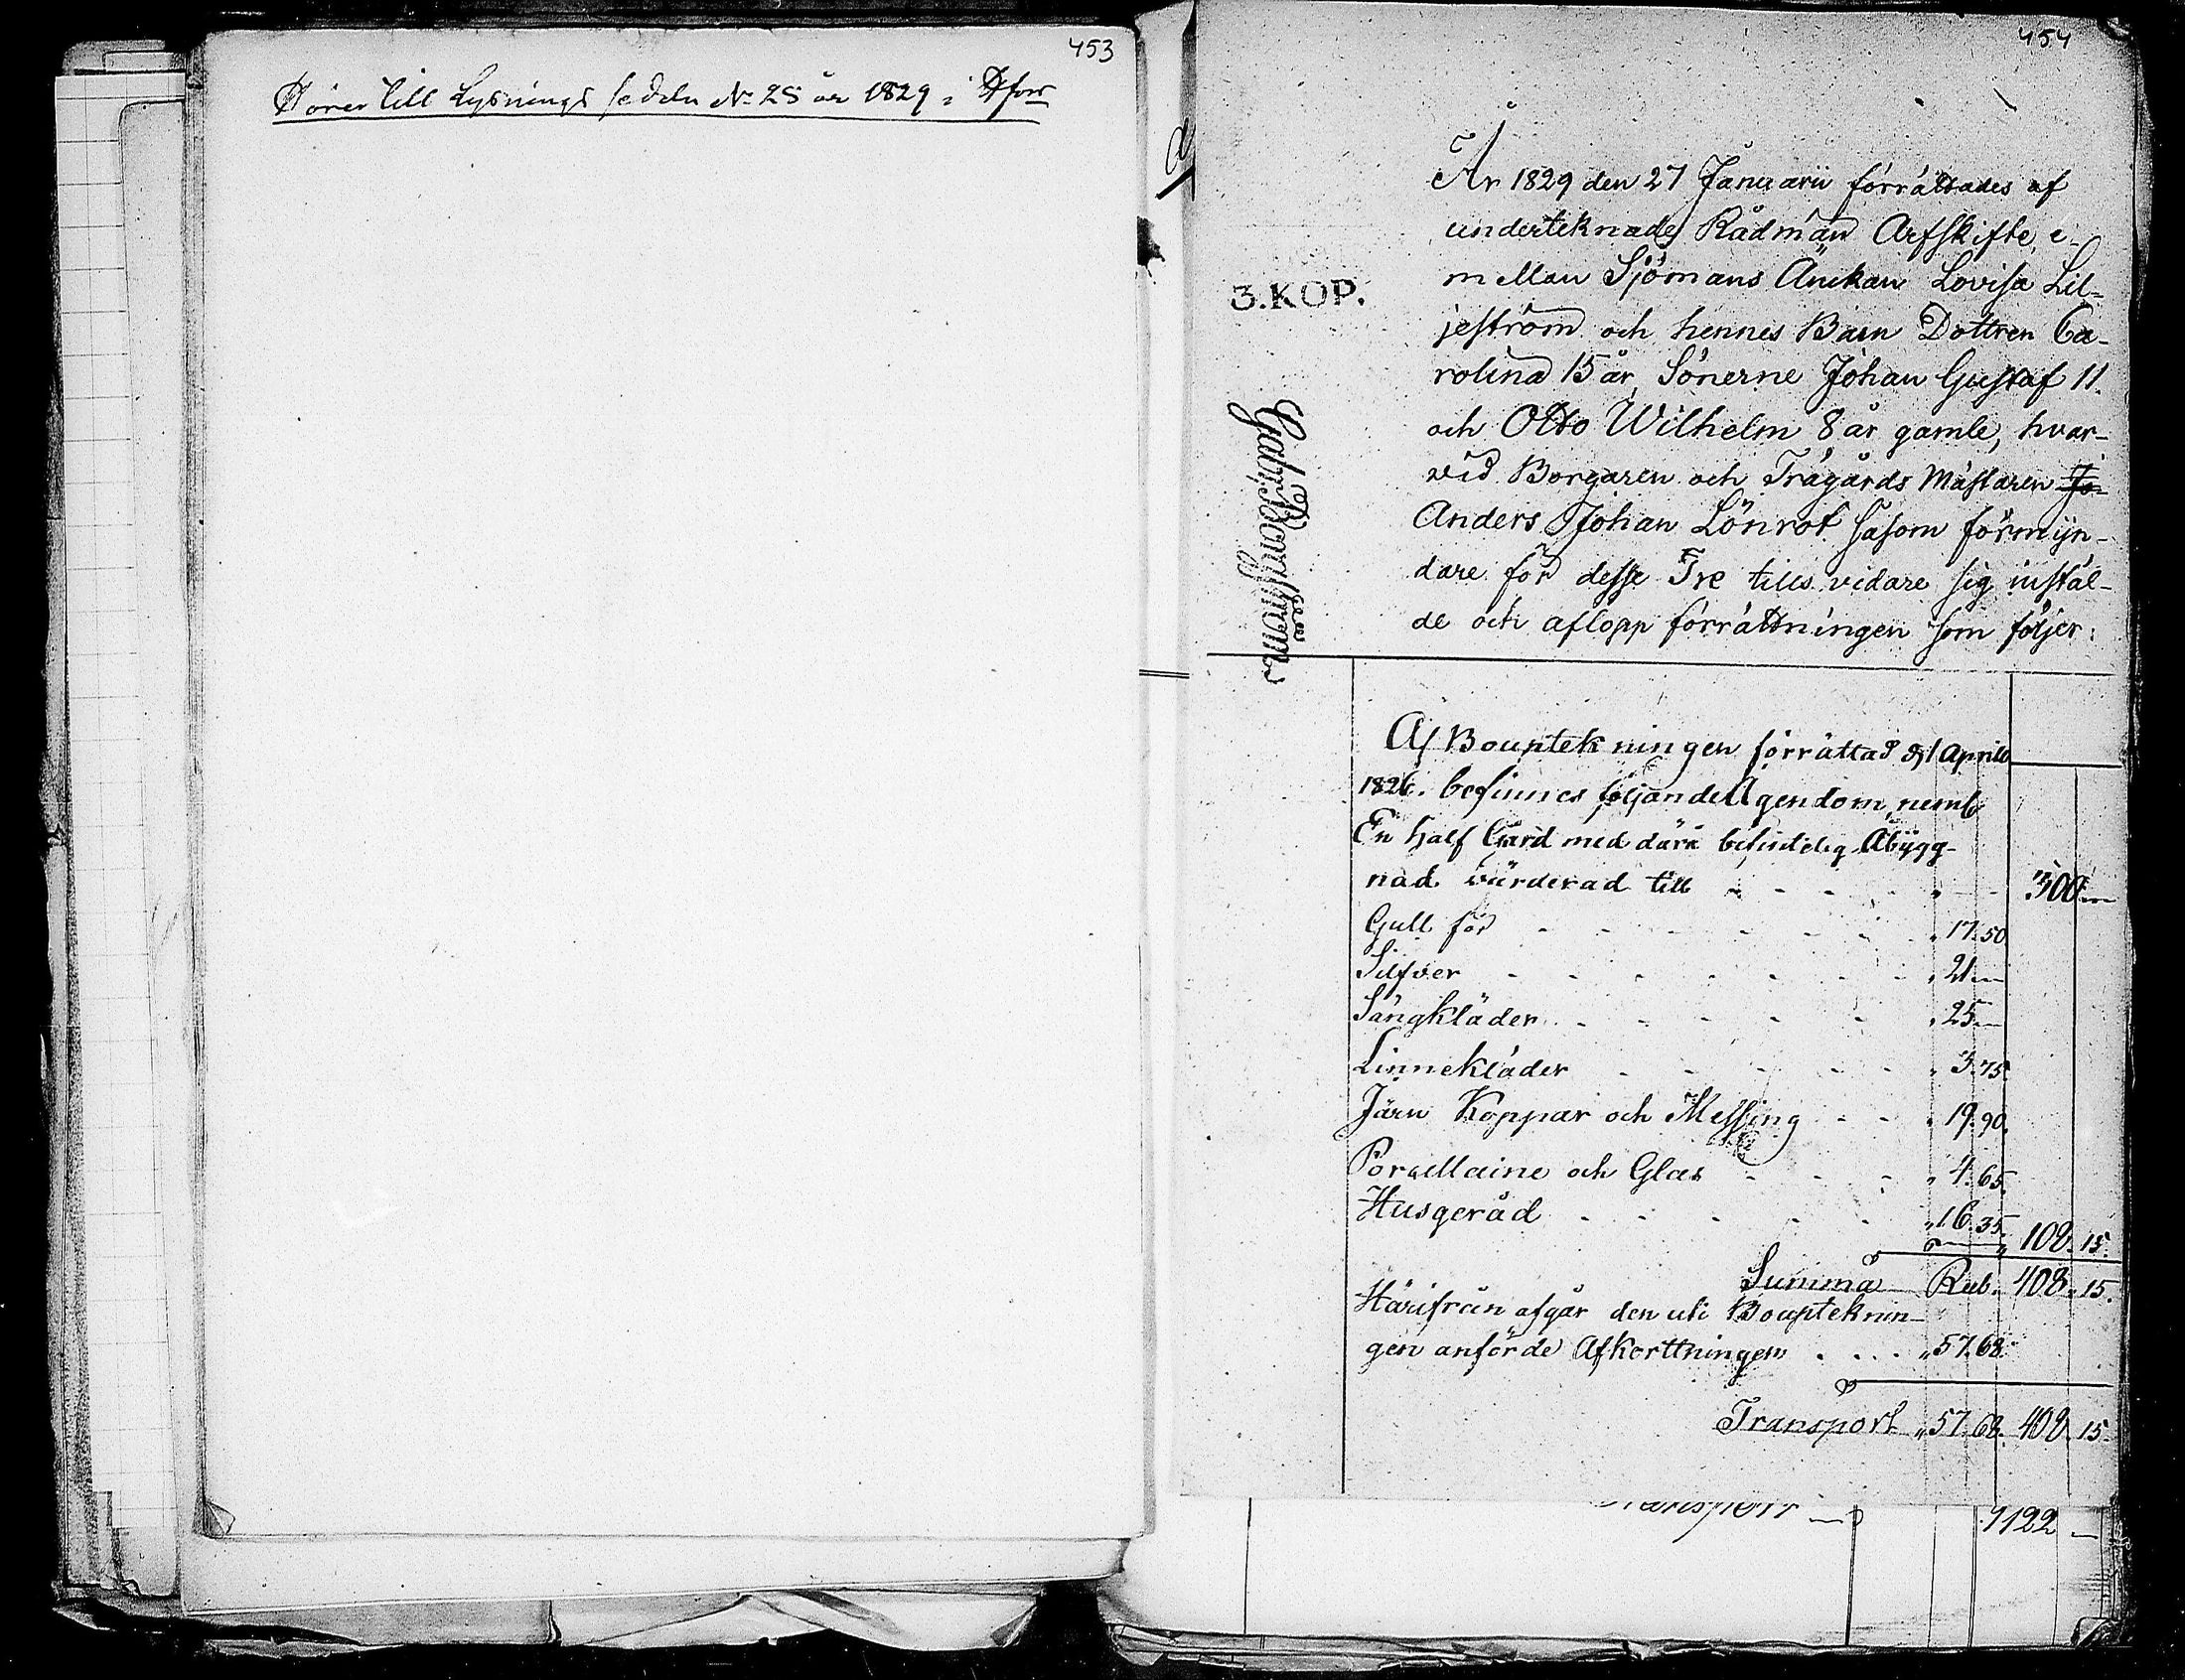 453
Hörer till Lysnings sedeln No 25 år 1829 i
454
År 1829 den 27 Januarii förrättades af
undertecknade Rådmän Arfskifte, e-
mellan Sjömans Änckan Lovisa Lil-
jeström och hennes Barn Dottren Ca-
rolina 15 år, Sönerne Johan Gustaf 11.
och Otto Wilhelm 8 år gamle, hvar-
vid Borgaren och Trägårds Mästaren Jo-
Anders Johan Lönrot såsom förmyn-
dare för desse Tre tills vidare sig instäl-
de och aflopp förrättningen som följer:
3.KOP.
Gabr. Bergström
Af Bouptekningen förrättad d. 1 Aprill
1826. befinnes följande Ägendom, neml.
En half Gård med därå befindelig Åbygg-
nad värderad till 300.—
Gull för 17.50.
Silfver 21.—
Sängkläder 25.—
Linnekläder 3.75.
Järn Koppar och Messing 19.90.
Porcellaine och Glas 4.65.
Husgeråd 16.35. 108.15.
Summa Rub. 408.15.
Härifrån afgår den uti Boupteknin-
gen anförde Afkorttningen 57.68.
Transport 57.68. 408.15.
Transport 1122 —